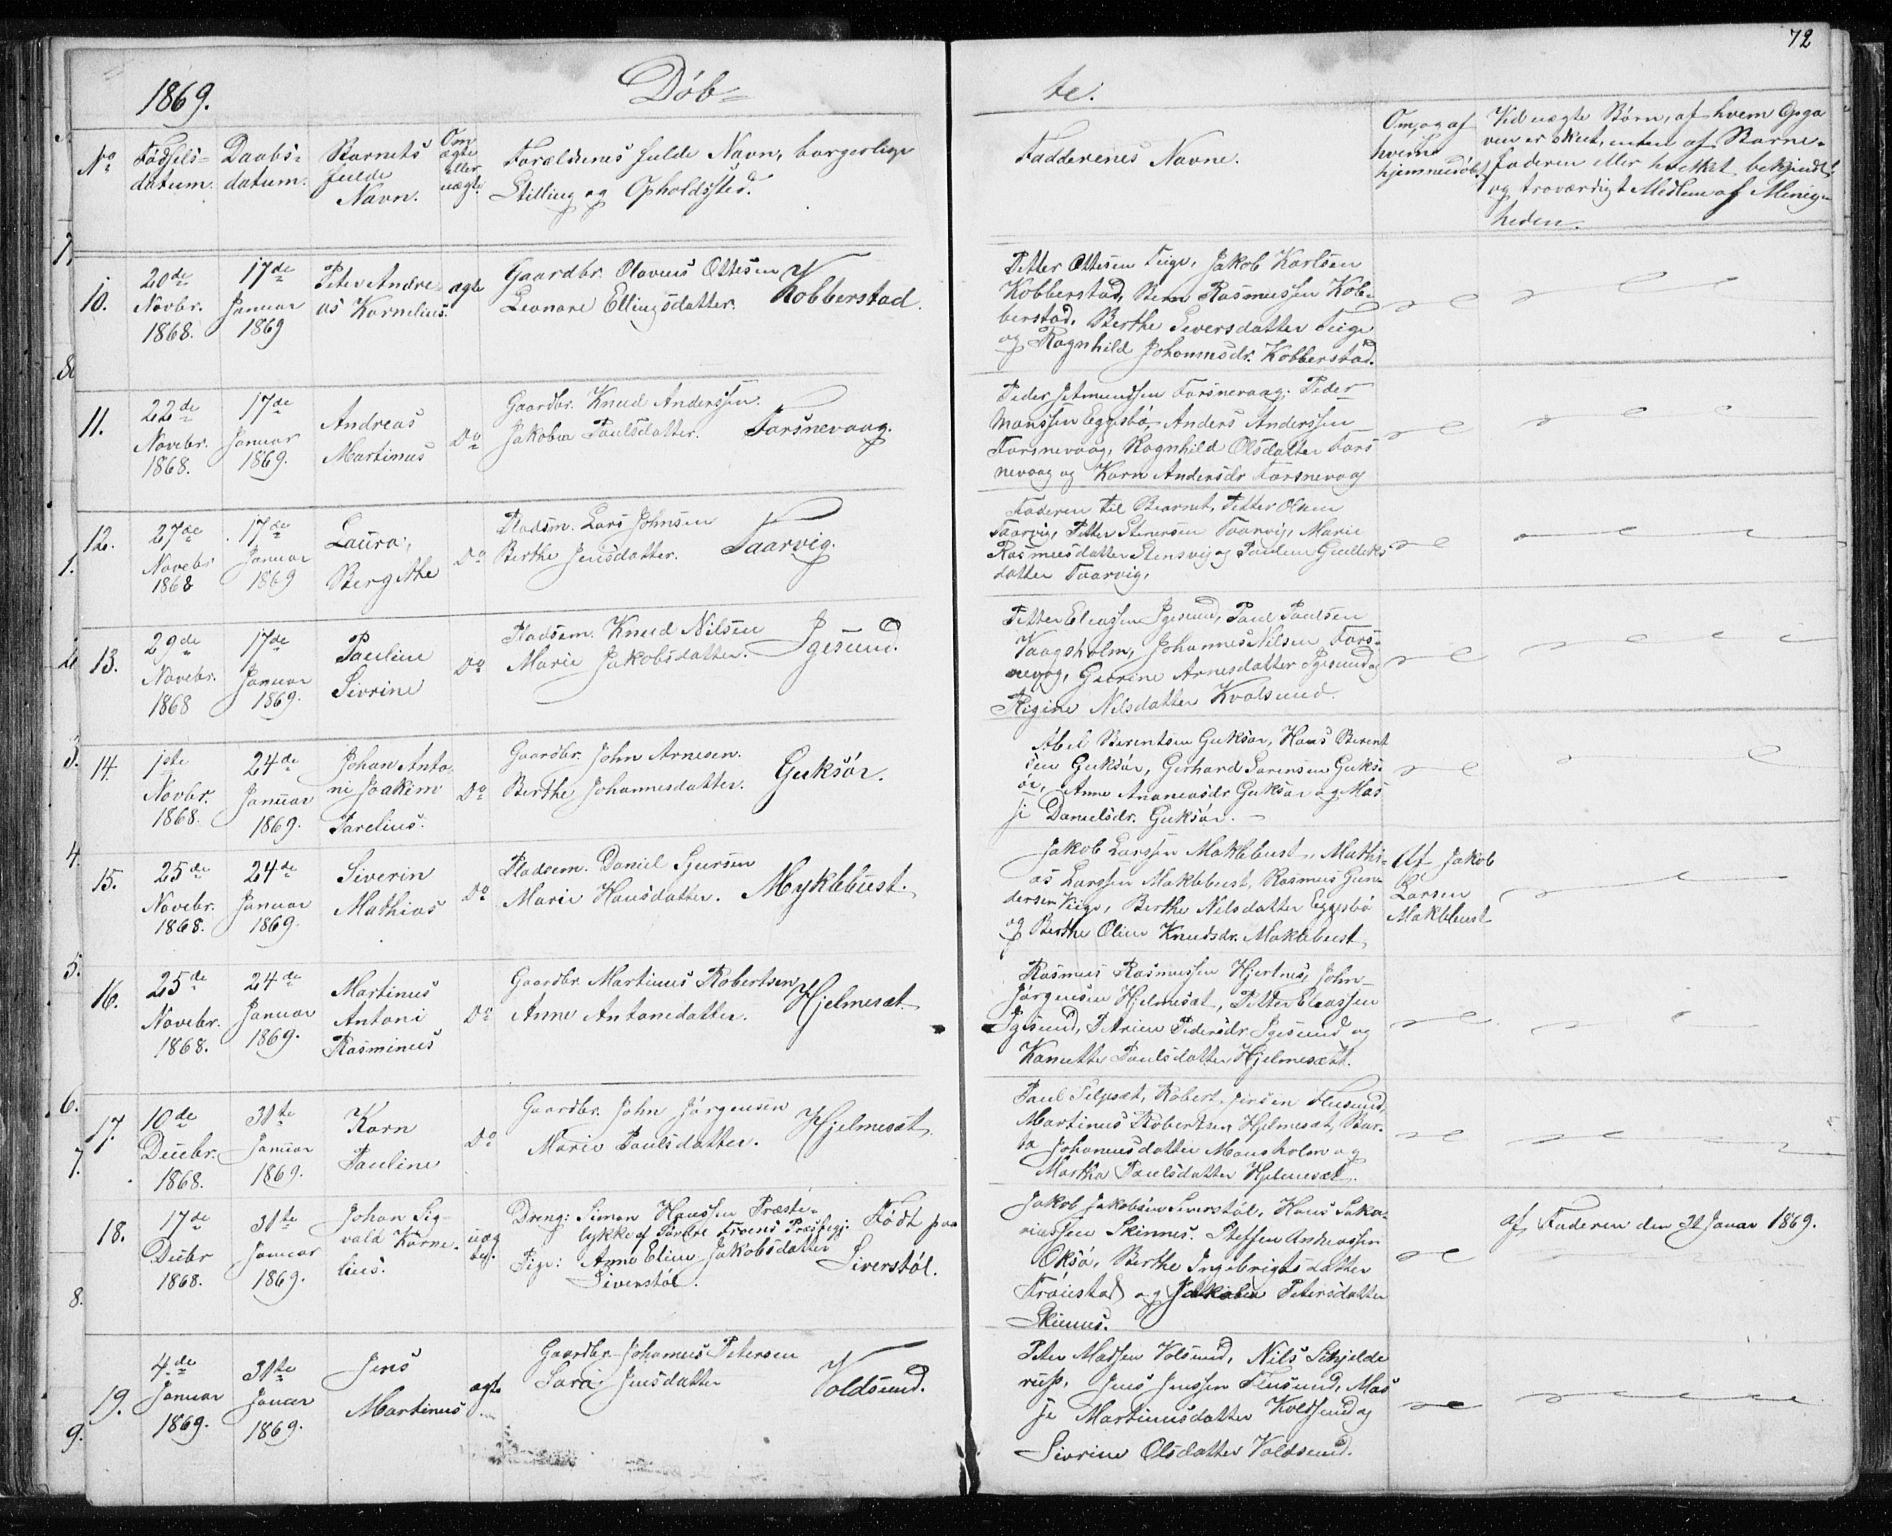 72
1869.
Døb=
te.
No
Fødsels=
datum.
Daabs=
datum.
Barnets
fulde
Navn.
Om
ægte
eller
uægte
Forældrenes fulde Navn, borgerlige
Stilling og Opholdssted.
Faddernes Navne.
Om og af
hvem
hjemmedøbt
Ved uægte Børn, af hvem Opga
ven er skeet, enten af Barne-
faderen eller hvilket bekjendt
og troværdigt Medlem af Menig-
heden.
10.
20de
Novbr.
1868.
17de
Januar
1869
Peter Andre-
as Kornelius.
ægte
Gaardbr. Olavus Ottesen
Leonare Ellingsdatter.
Kobberstad.
Petter Ottesen Teige, Jakob Karlsen
Kobberstad, Bern Rasmussen Kob-
berstad, Berthe Siversdatter Teige
og Ragnhild Johannesdr. Kobberstad.
11.
22de
Novebr.
1868.
17de
Januar
1869.
Andreas
Martinus
Do
Gaardbr. Knud Anderssen.
Jakobea Paulsdatter.
Torsnevaag.
Peder Torsnevaag. Peder
Monssen Eggesbø, Anders Anderssen
Torsnevaag, Ragnhild Olsdatter Tors
nevaag og Karn Andersdr Torsnevaag
12.
27de
Novebr
1868
17de
Januar
1869
Laura,
Bergithe
Do
Pladsm. Lars Johnsen
Berthe Jensdatter.
Taarvig.
Faderen til Barnet, Petter Olsen
Taarvig, Petter Stenersen Taarvig, Marie
Rasmusdatter Stensvig og
datter Taarvig.
13.
29de
Novebr.
1868
17de
Januar
1869.
Pauline
Sivrine
Do
Pladsem. Knud Nilsen
Marie Jakobsdatter.
Igesund.
Petter Eleassen Igesund, Paul Paulsen
Vaagsholm, Johannes Nilsen Tors-
nevaag, Arnesdatter Igesund og
Rigine Nilsdatter Kvalsund.
14.
1ste
Novbr.
1868.
24de
Januar
1869.
Johan Anto-
ni Joakim
Parelius.
Do
Gaardbr. John Arnesen.
Berthe Johannesdatter.
Gurksør.
Abel Berentsen Gurksør, Hans Berent
sen Gurksør, Gerhard Sørensen Gurks-
ør, Anne Ananiasdr Gurksør og Mas
si Danielsdr. Gurksør.
15.
25de
Novebr.
1868.
24de
Januar
1869.
Siverin
Mathias
Do
Pladsem. Daniel Sjursen
Marie Hansdatter.
Myklebust.
Jakob Larssen Maklebust, Mathi-
as Larssen Maklebust, Rasmus Gun-
dersen Teige, Berthe Nilsdatter Eggesbø
og Berthe Oline Knudsdr. Maklebust
Af Jakob
Larsen
Maklebust
16.
25de
Novebr.
1868.
24de
Januar
1869.
Martinus
Antoni
Rasminus
Do
Gaardbr. Martinus Robertsen
Anne Antonedatter.
Hjelmesæt
Rasmus Rasmussen Hjertnes, John
Jørgensen Hjelmesæt, Petter Eleassen
Igesund, Pedersdr. Igesund og
Kanutte Paulsdatter Hjelmesæt.
17.
10de
Decebr.
1868.
31te
Januar
1869.
Karn
Pauline
Do
Gaardbr. John Jørgensen
Marie Paulsdatter.
Hjelmesæt.
Paul Robert Flusund,
Martinus Robertsen Hjelmesæt, Bar-
ba Johannesdatter Mansholm og
Martha Paulsdatter Hjelmesæt.
18.
17de
Decbr
1868.
31te
Januar
1869.
Johan Sig-
vald Korne-
lius.
uæg
te.
Dreng: Simon Hanssen Præste-
lykke af Søndre Froens Præstegj.
Pige: Anne Eline Jakobsdatter
Siverstøl.
Født paa
Siverstøl.
Jakob Jakobsen Siverstøl, Hans Saka-
riassen Skinnes. Steffen Andreassen
Oksø, Berthe Ingebrigtsdatter
Frøistad og Jakobea Petersdatter
Skinnes.
af Faderen den 21 Januar 1869.
19.
4de
Januar
1869.
31te
Januar
1869.
Jens
Martinus
ægte
Gaardbr. Johannes Petersen
Sara Jensdatter
Voldsund.
Peter Madssen Volsund, Nils Schjelde
rup, Jens Jenssen Flusund, Mas
si Martinusdatter Voldsund og
Sivrine Olsdatter Voldsund.
7.
8.
1.
2.
3.
4.
5.
6.
7.
8.
9.